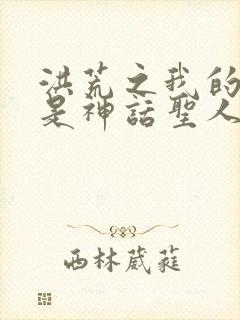 洪荒之我的
是神話聖人
西林葳蕤